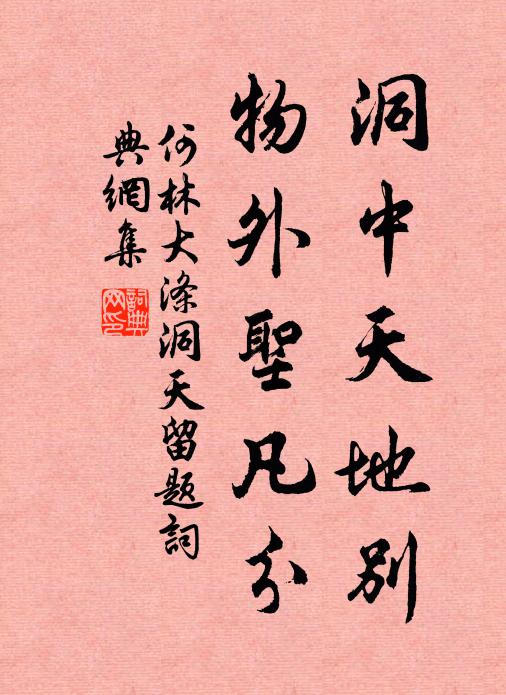 洞中天地别
物外聖凡分
何林大滌洞天留題詞
典網集
詞典
网印